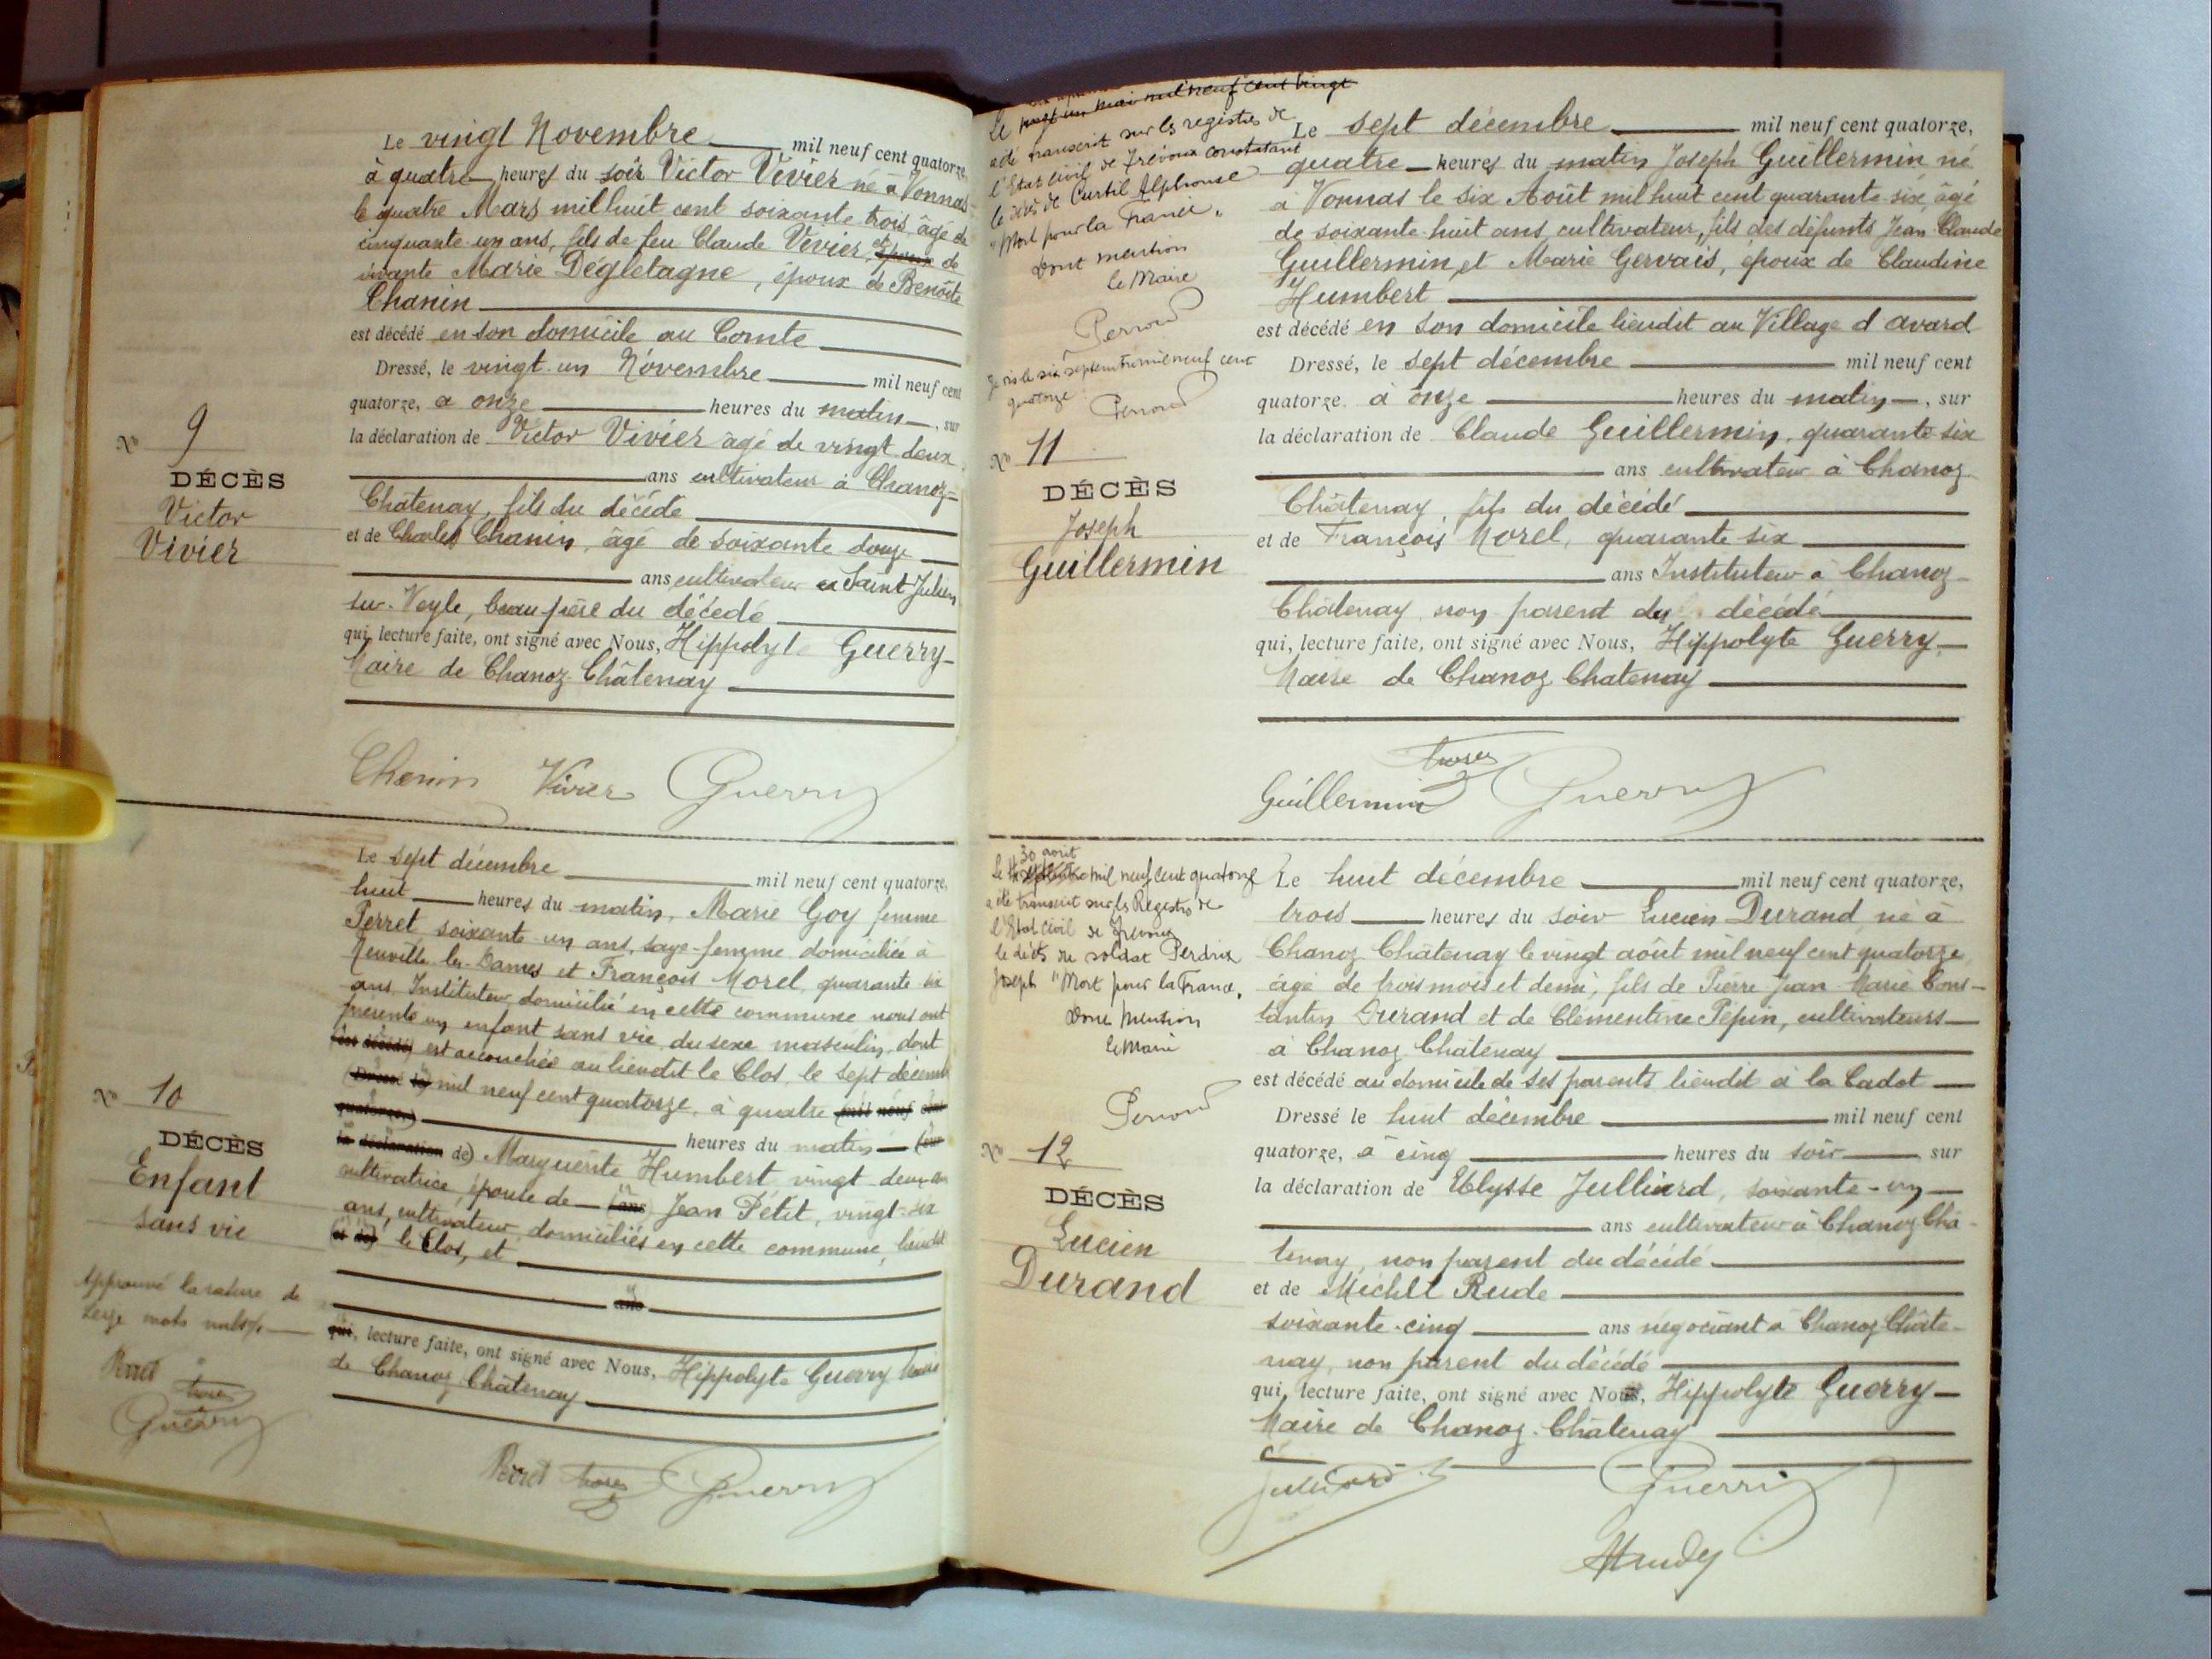 Le vingt Novembre mil neuf cent quatorze,
à quatre heures du soir Victor Vivier né à Vonnas
le quatre Mars mil huit cent soixante trois, âgé de
cinquante-un ans, fils de feu Claude Vivier, et de
vivante Marie Dégletagne, époux de Benoîte
Chanin
est décédé en son domicile au Comte
Dressé, le vingt-un Novembre mil neuf cent
quatorze, à onze heures du matin, sur
la déclaration de Victor Vivier âgé de vingt deux
ans cultivateur à Chanoz-
Châtenay, fils du décédé
et de Charles Chanin, âgé de soixante douze
ans cultivateur à Saint Julien
sur-Veyle, beau père du décédé
qui, lecture faite, ont signé avec Nous, Hippolyte Guerry
Maire de Chanoz-Châtenay
N° 9
DÉCÈS
Victor
Vivier
Chanin Vivier Guerry
Le sept décembre mil neuf cent quatorze,
huit heures du matin, Marie Goy femme
Perret, soixante-un ans, sage-femme domiciliée à
Neuville-les-Dames et François Morel, quarante six
ans, Instituteur, domicilié en cette commune nous ont
présenté un enfant sans vie, du sexe masculin, dont
(est décédé) est accouchée au lieudit le Clos, le sept décembre
(Dressé le) mil neuf cent quatorze, à quatre (mil neuf cent
quatorze,) heures du matin (sur
la déclaration de) Marguerite Humbert, vingt-deux ans
cultivatrice, épouse de (ans) Jean Petit, vingt-six
ans, cultivateur, domiciliés en cette commune, lieudit
(et de) le Clos, et
ans
qui, lecture faite, ont signé avec Nous, Hippolyte Guerry Maire
de Chanoz Châtenay
N° 10
DÉCÈS
Enfant
sans vie
Approuvé la rature de
seize mots nuls
Perret
Guerry
Perret Guerry
Le mai mil neuf cent vingt
a été transcrit sur les registres de
l'Etat civil de Trévoux constatant
le décès de Curtil Alphonse
"Mort pour la France"
Dont mention
le Maire
Perroud
quatorze
Perroud
Le sept décembre mil neuf cent quatorze,
quatre heures du matin Joseph Guillermin né
à Vonnas le six Août mil huit cent quarante-six, âgé
de soixante-huit ans, cultivateur, fils des défunts Jean-Claude
Guillermin, et Marie Gervais, époux de Claudine
Humbert
est décédé en son domicile lieudit au Village d'avard
Dressé, le sept décembre mil neuf cent
quatorze, à onze heures du matin, sur
la déclaration de Claude Guillermin, quarante-six
ans cultivateur à Chanoz-
Châtenay, fils du décédé
et de François Morel, quarante six
ans Instituteur à Chanoz-
Châtenay, non parent du décédé
qui, lecture faite, ont signé avec Nous, Hippolyte Guerry
Maire de Chanoz Chatenay
N° 11
DÉCÈS
Joseph
Guillermin
Guillermin Guerry
30 août
Le mil neuf cent quatorze
a été transcrit sur les Registres de
l'Etat civil de Trévoux
le décès du soldat Perdrix
Joseph "Mort pour la France"
Dont mention
le Maire
Perroud
Le huit décembre mil neuf cent quatorze,
trois heures du soir Lucien Durand, né à
Chanoz Châtenay le vingt août mil neuf cent quatorze
âgé de trois mois et demi, fils de Pierre Jean-Marie Cons-
tantin Durand et de Clémentine Pépin, cultivateurs
à Chanoz Châtenay
est décédé au domicile de ses parents lieudit à la Cadot
Dressé le huit décembre mil neuf cent
quatorze, à cinq heures du soir sur
la déclaration de Ulysse Julliard, soixante-un
ans cultivateur à Chanoz Châ-
tenay, non parent du décédé
et de Michel Rude
soixante-cinq ans négociant à Chanoz Châte-
nay, non parent du décédé
qui, lecture faite, ont signé avec Nous, Hippolyte Guerry
Maire de Chanoz-Châtenay
N° 12
DÉCÈS
Lucien
Durand
Julliard Guerry